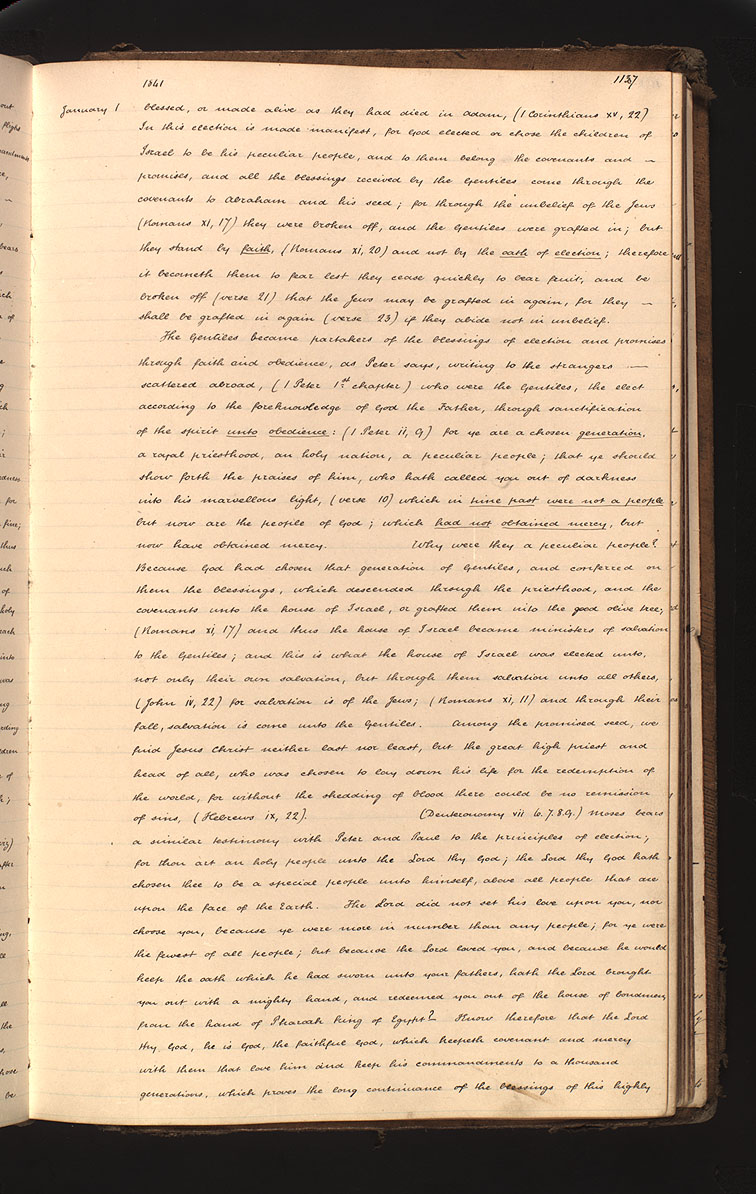 1841
1137
January 1
blessed, or made alive as they had died in adam, (1 Corinthians xv, 22)
In this election is made manifest, for God elected or chose the children of
Israel to be his peculiar people, and to them belong the covenants and —
promises, and all the blessings received by the Gentiles come through the
covenants to abraham and his seed; for through the unbelief of the Jews
(Romans xi, 17) they were broken off, and the Gentiles were grafted in; but
they stand by faith, (Romans xi, 20) and not by the oath of election; therefore
it becometh them to fear lest they cease quickly to bear fruit, and be
broken off (verse 21) that the Jews may be grafted in again, for they —
shall be grafted in again (verse 23) if they abide not in unbelief.
The Gentiles became partakers of the blessings of election and promises
through faith and obedience, as Peter says, writing to the strangers —
scattered abroad, (1 Peter 1st chapter) who were the Gentiles, the elect
according to the foreknowledge of God the Father, through sanctification
of the spirit unto obedience: (1 Peter ii, 9) for ye are a chosen generation,
a royal priesthood, an holy nation, a peculiar people; that ye should
show forth the praises of him, who hath called you out of darkness
into his marvellous light, (verse 10) which in time past were not a people
but now are the people of God; which had not obtained mercy, but
now have obtained mercy. Why were they a peculiar people?
Because God had chosen that generation of Gentiles, and conferred on
them the blessings, which descended through the priesthood, and the
covenants unto the house of Israel, or grafted them into the good olive tree;
(Romans xi, 17) and thus the house of Israel became ministers of salvation
to the Gentiles; and this is what the house of Israel was elected unto,
not only their own salvation, but through them salvation unto all others,
(John iv, 22) for salvation is of the Jews; (Romans xi, 11) and through their
fall, salvation is come unto the Gentiles. Among the promised seed, we
find Jesus Christ neither last nor least, but the great high priest and
head of all, who was chosen to lay down his life for the redemption of
the world, for without the shedding of blood there could be no remission
of sins, (Hebrews ix, 22). (Deuteronomy vii 6.7.8.9.) Moses bears
a similar testimony with Peter and Paul to the principles of election;
for thou art an holy people unto the Lord thy God; the Lord thy God hath
chosen thee to be a special people unto himself, above all people that are
upon the face of the Earth. The Lord did not set his love upon you, nor
choose you, because ye were more in number than any people; for ye were
the fewest of all people; but because the Lord loved you, and because he would
keep the oath which he had sworn unto your fathers, hath the Lord brought
you out with a mighty hand, and redeemed you out of the house of bondmen,
from the hand of Pharaoh King of Egypt? Know therefore that the Lord
thy God, he is God, the faithful God, which keepeth covenant and mercy
with them that love him and keep his commandments to a thousand
generations, which proves the long continuance of the blessings of this highly